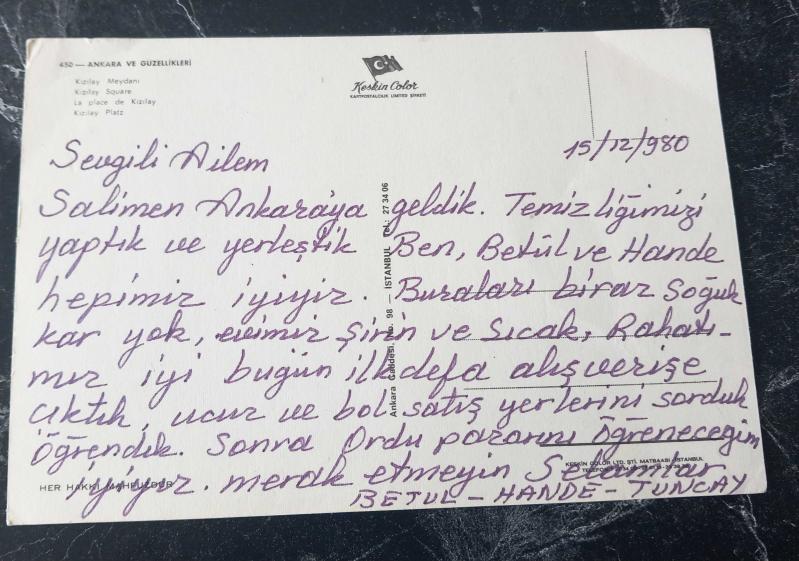 450 — ANKARA VE GÜZELLİKLERİ
Kızılay Meydanı
Kızılay Square
La place de Kızılay
Kızılay Platz
Keskin Color
KARTPOSTALCILIK LİMİTED ŞİRKETİ
15/12/980
Sevgili Ailem
Salimen Ankara'ya geldik. Temizliğimizi
yaptık ve yerleştik Ben, Betül ve Hande
hepimiz iyiyiz. Buraları biraz soğuk
kar yok, evimiz şirin ve sıcak, Rahatı-
mız iyi bugün ilk defa alışverişe
çıktık, ucuz ve bol satış yerlerini sorduk
öğrendik. Sonra Ordu pazarını öğreneceğim
iyiyiz. merak etmeyin Selamlar
BETÜL - HANDE - TUNCAY
Ankara Caddesi, No. 98 — İSTANBUL Tel: 27 34 06
KESKİN COLOR LTD. ŞTİ. MATBAASI - İSTANBUL
HER HAKKI MAHFUZDUR